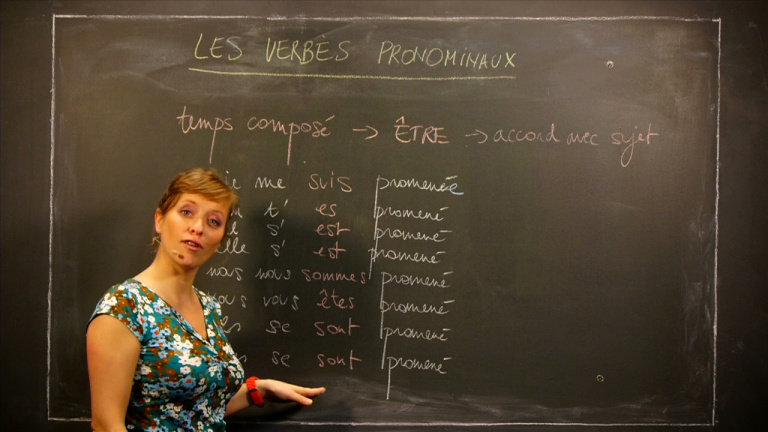 LES VERBES PRONOMINAUX
temps composé → ÊTRE → accord avec sujet
je me suis promenée
t' es promené
s' est promené
elle s' est promené
nous nous sommes promené
vous vous êtes promené
se sont promené
se sont promené